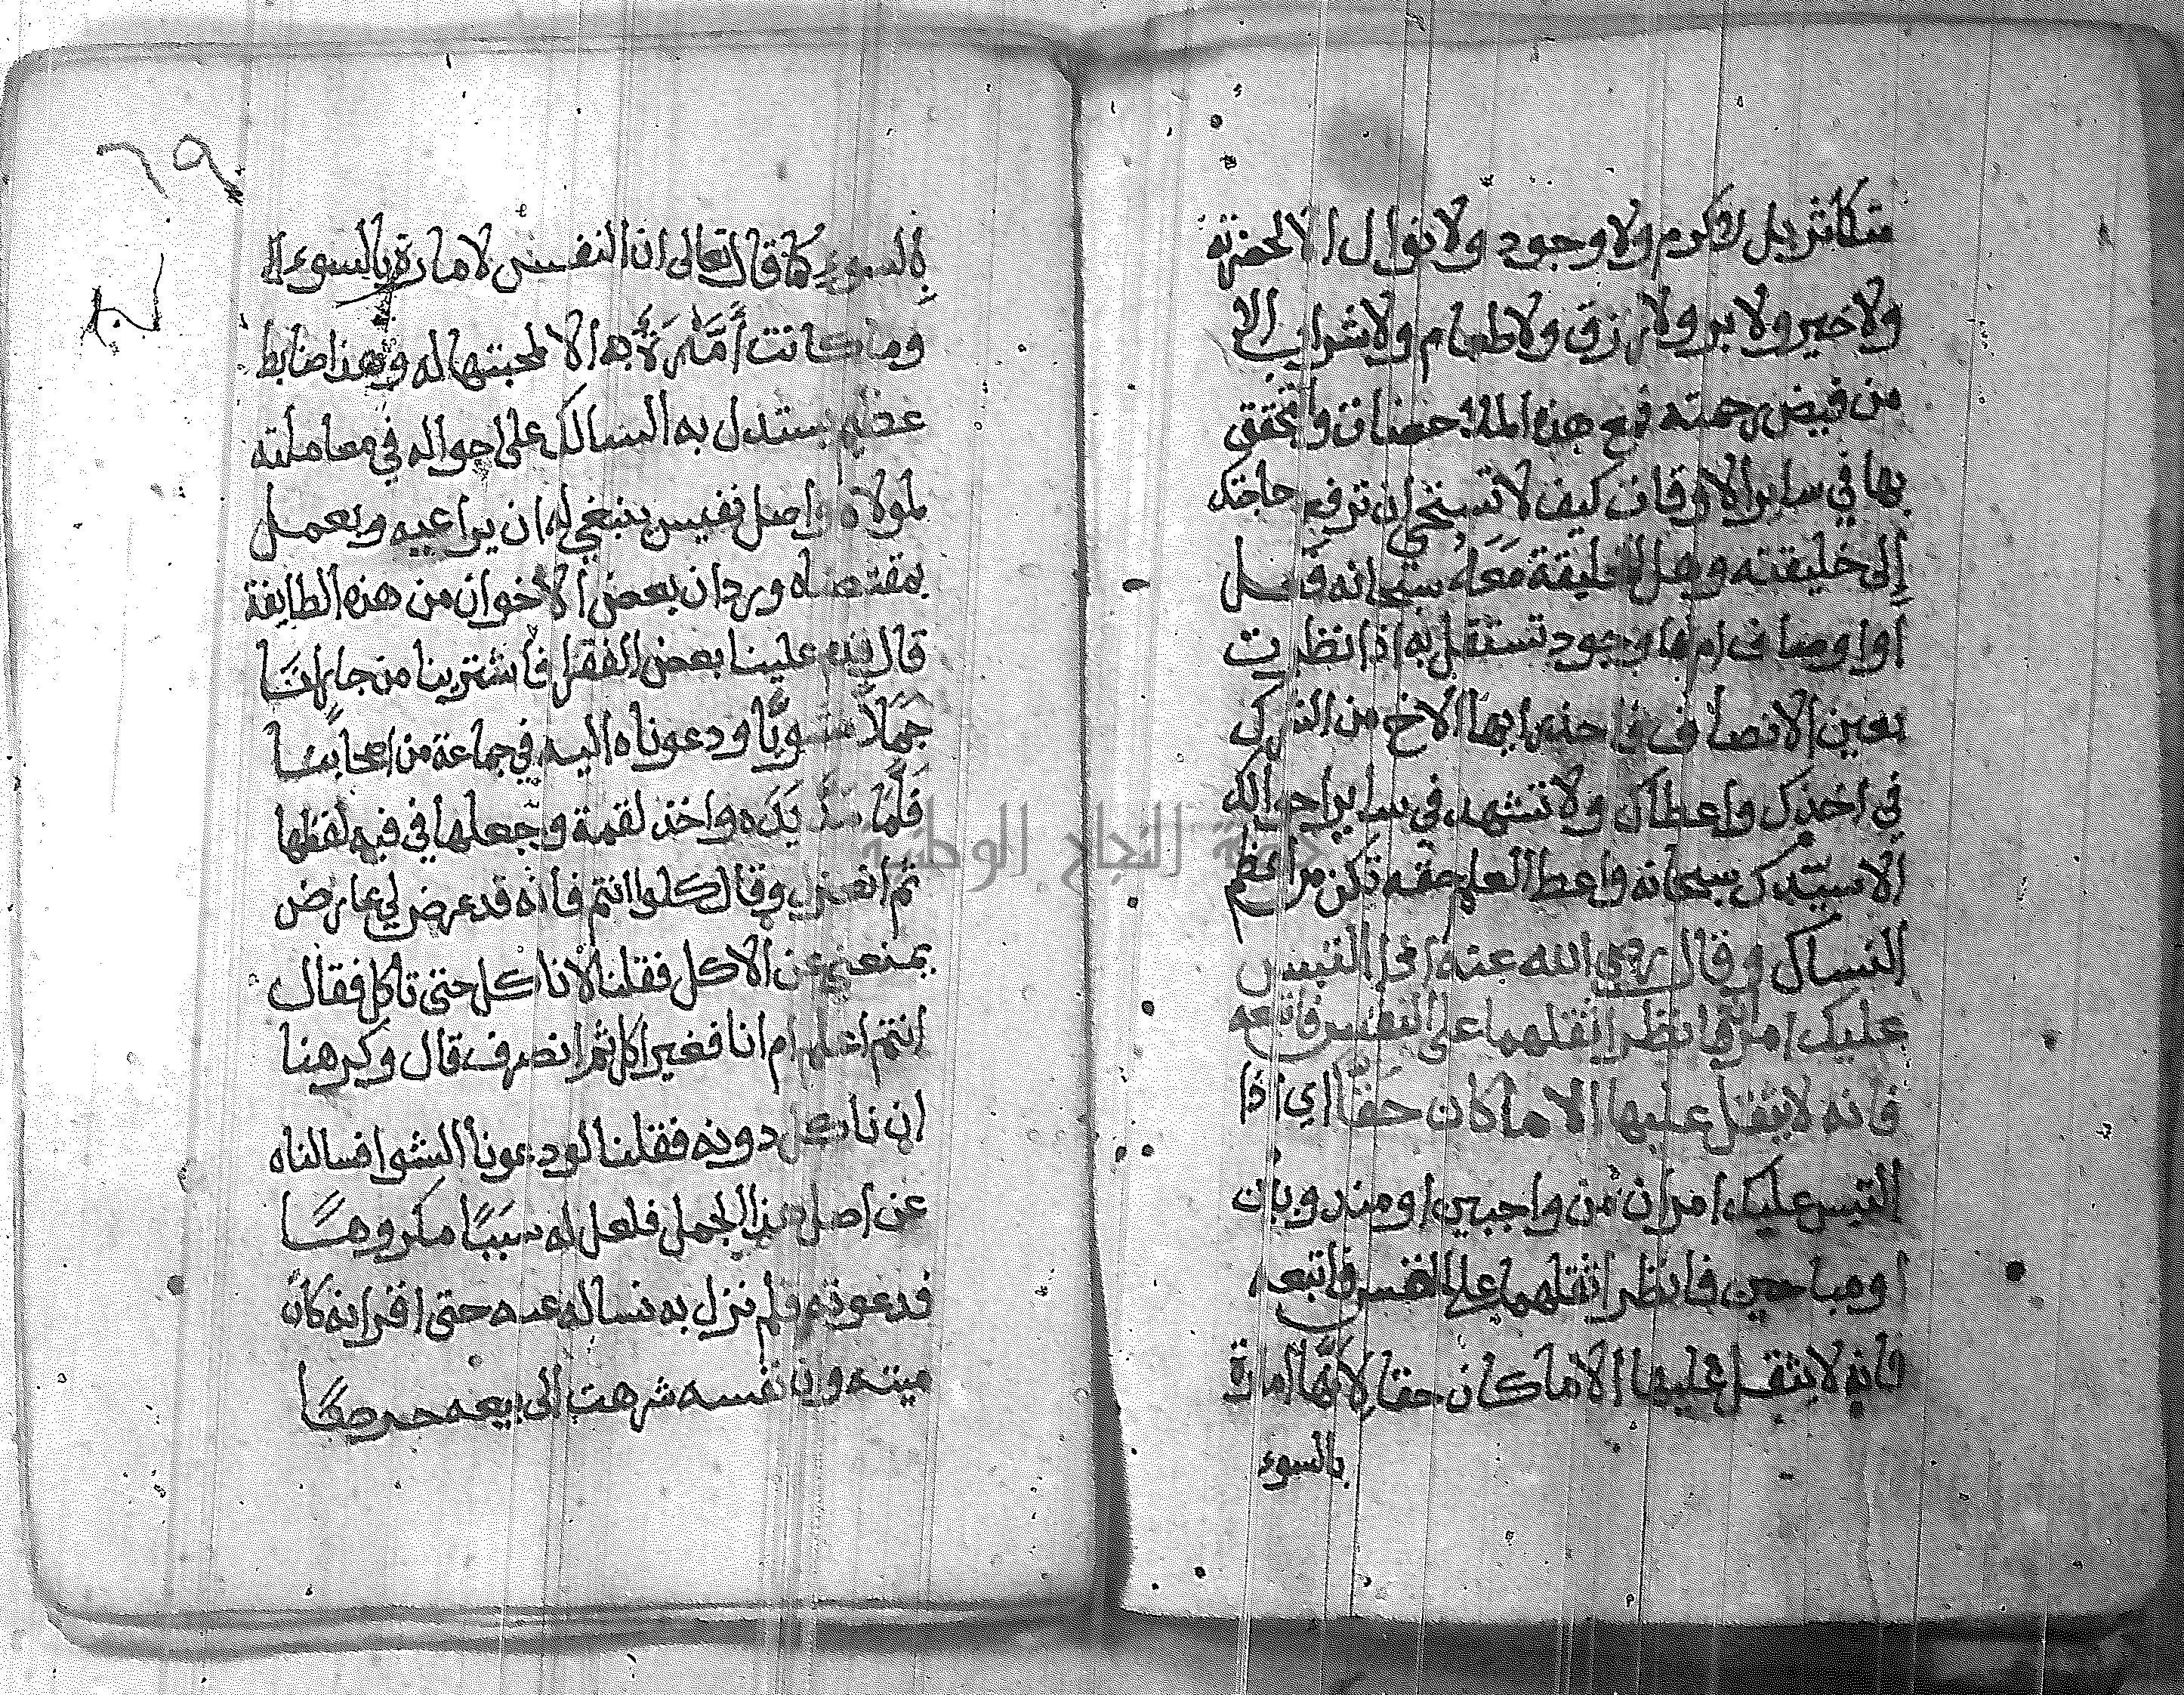 متكاثر بل لا كرم ولا وجود ولا نوال الا لحضرته
ولا خير ولا بر ولا رزق ولا طعام ولا شراب الا
من فيض رحمته فمع هذه وتحقق
بها في ساير الاوقات كيف لا تستحي ان ترفع حاجتك
الى خليقته وهل للخليقة معه سبحانه فعل
او اوصاف ام لها وجود تستقل به اذا نظرت
بعين الانصاف فاحذر ايها الاخ من الشرك
في اخذك واعطاك ولا تشهد في ساير احوالك
الا سيدك سبحانه واعط العلم حقه تكن من اعظم
النساك وقال رضي الله عنه اذا التبس
عليك امران انظر اثقلهما على النفس فاتبعه
فانه لا يثقل عليها الا ما كان حقا اي اذا
التبس عليك امران من واجبين او مندوبان
او مباحين فانظر اثقلهما على النفس فاتبعه
فانه لا يثقل عليها الا ما كان حقا لانها امارة
بالسوء
٦٩
بالسوء كما قال تعالى ان النفس لامارة بالسوء
وما كانت الا لمحبتها له وهذا ضابط
عظيم يستدل به السالك على احواله في معاملته
لمولاه واصل نفيس ينبغي له ان يراعيه ويعمل
بمقتضاه ورد ان بعض الاخوان من هذه الطايفة
قال قدم علينا بعض الفقرا فاشترينا من جار لنا
جملا مشويا ودعوناه اليه في جماعة من اصحابنا
فلما مد يده واخذ لقمة وجعلها في فيه لفظها
ثم انعزل وقال كلوا انتم فانه قد عرض لي عارض
يمنعني عن الاكل فقلنا لا ناكل حتى تاكل فقال
انتم اعلم ام انا فغير اكل ثم انصرف قال وكرهنا
ان ناكل دونه فقلنا لو دعونا الشوا فسالناه
عن اصل هذا الجمل فلعل له سببا مكروها
فدعوته فلم نزل به نساله عنه حتى اقر انه كان
ميتة وان نفسه شرهت الى بيعه حرصا